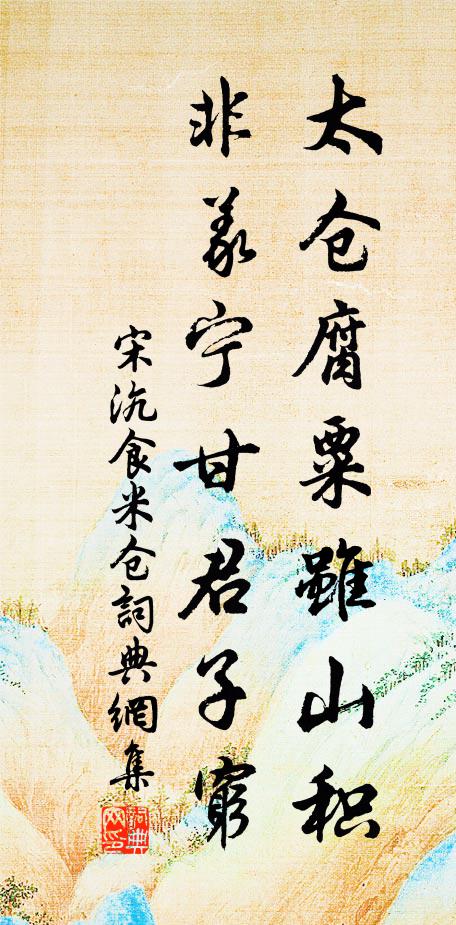 太仓腐粟雖山积
非义宁甘君子窮
宋沆食米仓詞典網集
詞典